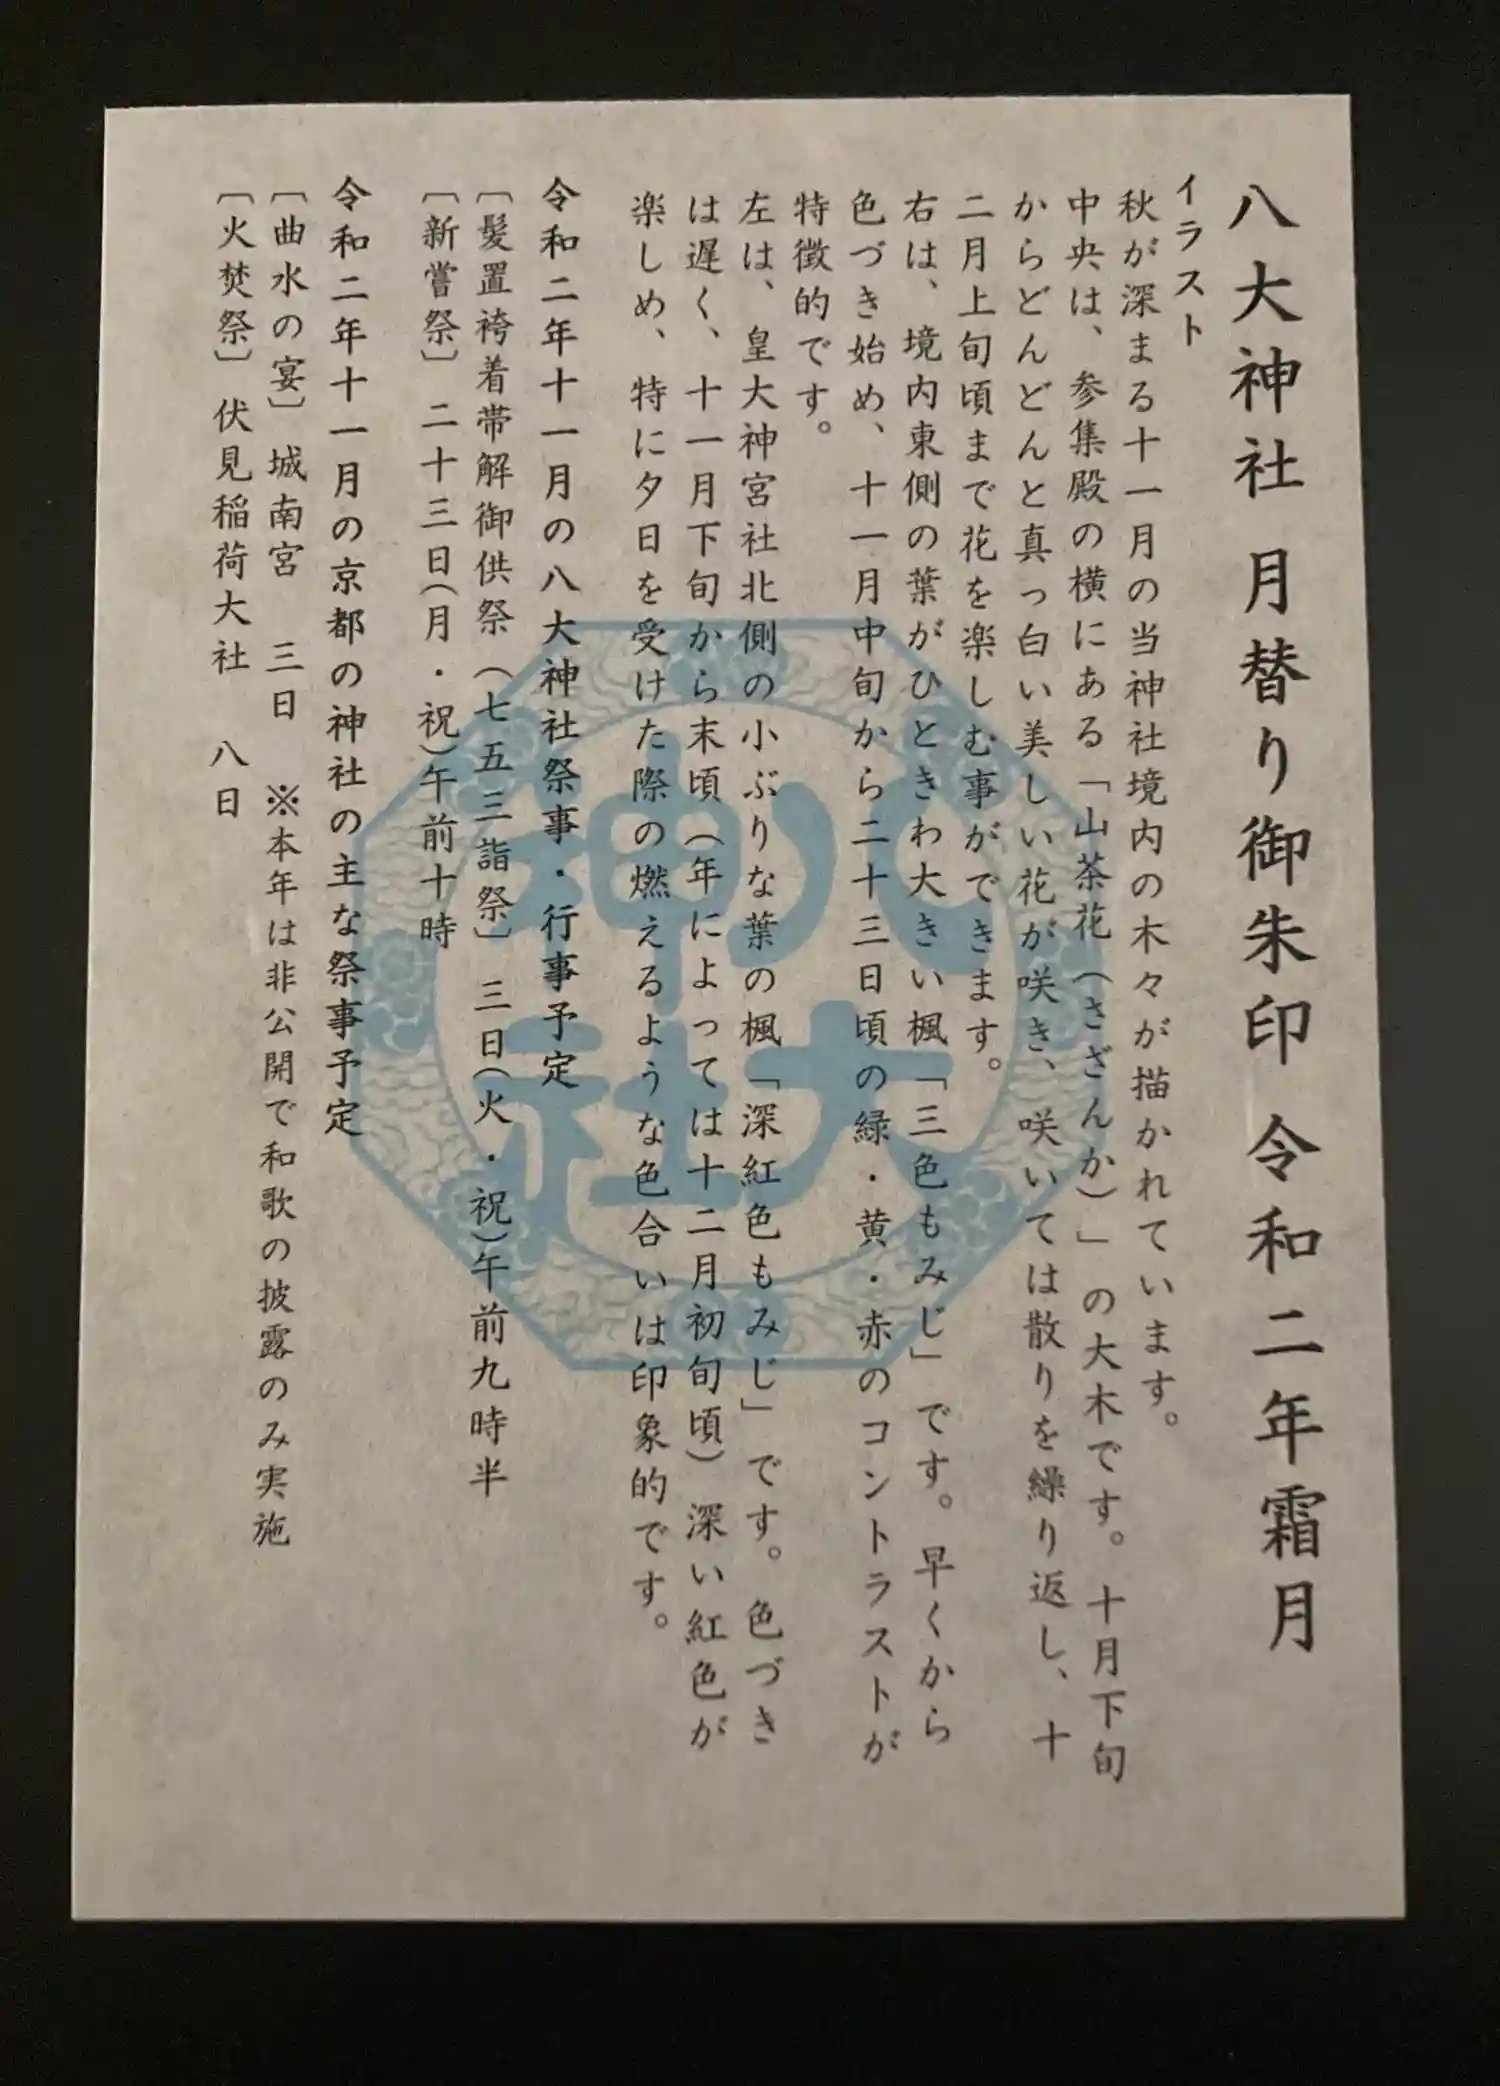 八大神社 月替り御朱印 令和二年霜月
イラスト
秋が深まる十一月の当神社境内の木々が描かれています。
中央は、参集殿の横にある「山茶花（さざんか）」の大木です。十月下旬
からどんどんと真っ白い美しい花が咲き、咲いては散りを繰り返し、十
二月上旬頃まで花を楽しむ事ができます。
右は、境内東側の葉がひときわ大きい楓「三色もみじ」です。早くから
色づき始め、十一月中旬から二十三日頃の緑・黄・赤のコントラストが
特徴的です。
左は、皇大神宮社北側の小ぶりな葉の楓「深紅色もみじ」です。色づき
は遅く、十一月下旬から末頃（年によっては十二月初旬頃）深い紅色が
楽しめ、特に夕日を受けた際の燃えるような色合いは印象的です。
令和二年十一月の八大神社祭事・行事予定
〔髪置袴着帯解御供祭（七五三詣祭〕 三日（火・祝）午前九時半
〔新嘗祭〕 二十三日（月・祝）午前十時
令和二年十一月の京都の神社の主な祭事予定
〔曲水の宴〕城南宮 三日 ※本年は非公開で和歌の披露のみ実施
〔火焚祭〕伏見稲荷大社 八日
八大
神社